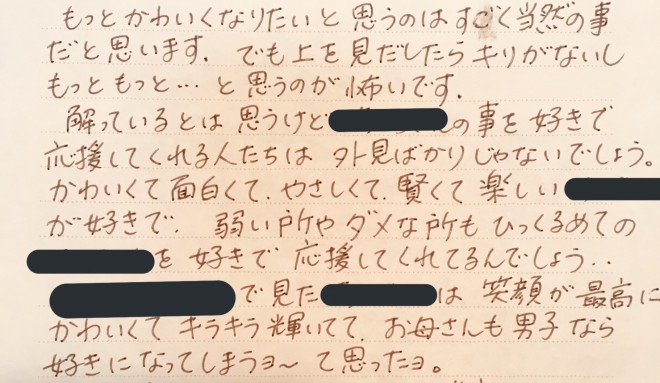 もっとかわいくなりたいと思うのはすごく当然の事
だと思います。でも上を見だしたらキリがないし
もっともっと…と思うのが怖いです。
解っているとは思うけどの事を好きで
応援してくれる人たちは外見ばかりじゃないでしょう。
かわいくて面白くて、やさしくて、賢くて楽しい
が好きで、弱い所やダメな所もひっくるめての
を好きで応援してくれてるんでしょう..
で見たは笑顔が最高に
かわいくてキラキラ輝いてて、お母さんも男子なら
好きになってしまうヨ～て思ったヨ。